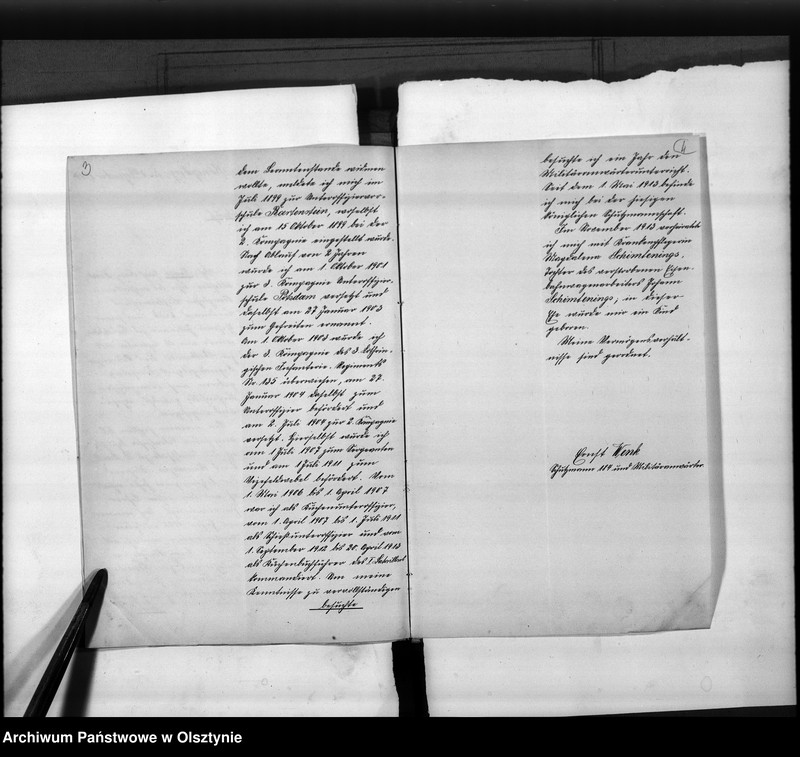 3
dem Beamtenstande widmen
wollte, meldete ich mich im
Juli 1899 zur Unteroffiziervor-
schule Bartenstein, woselbst
ich am 15 Oktober 1899 bei der
2. Kompagnie eingestellt wurde.
Nach Ablauf von 2 Jahren
wurde ich am 1 Oktober 1901
zur 3. Kompagnie Unteroffizier-
schule Potsdam versetzt und
daselbst am 27 Januar 1903
zum Gefreiten ernannt.
Am 1. Oktober 1903 wurde ich
der 3. Kompagnie des 3. Lothrin-
gischen Infanterie-Regiments
Nr. 135 überwiesen, am 27.
Januar 1904 daselbst zum
Unteroffizier befördert und
am 2. Juli 1904 zur 2. Kompagnie
versetzt. Hierselbst wurde ich
am 1 Juli 1907 zum Sergeanten
und am 1 Juli 1911 zum
Vizefeldwebel befördert. Vom
1. Mai 1906 bis 1. April 1907
war ich als Küchenunteroffizier,
vom 1. April 1907 bis 1. Juli 1911
als Schießunteroffizier und vom
1. September 1912 bis 20. April 1913
als Küchenbuchführer des
kommandiert. Um meine
Kenntnisse zu vervollständigen
besuchte
4
besuchte ich ein Jahr den
Militäranwärterunterricht.
Seit dem 1. Mai 1913 befinde
ich mich bei der hiesigen
Königlichen Schutzmannschaft.
Im November 1913 verheiratete
ich mich mit Krankenpflegerin
Magdalena Schimtenings,
Tochter des verstorbenen Eisen-
bahnwagenarbeiters Johann
Schimtenings, in dieser
Ehe wurde mir ein Kind
geboren.
Meine Vermögensverhält-
nisse sind geordnet.
Ernst Wenk
Schutzmann 114 und Militäranwärter.
Archiwum Państwowe w Olsztynie